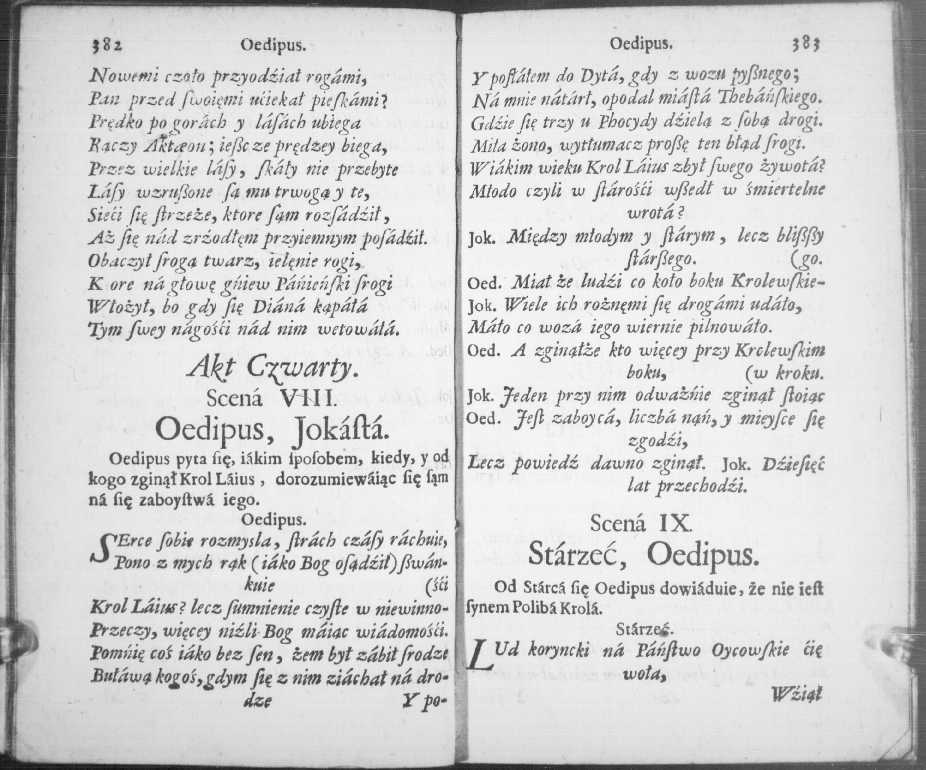 382 Oedipus.
Nowemi czoło przyodźiał rogámi,
Pan przed ſwoięmi ućiekał pieſkámi?
Prędko po gorách y láſách ubiega
Rączy Aktæon; ieſzcze prędzey biega,
Przez wielkie láſy, ſkáły nie przebyte
Láſy wzruſzone ſą mu trwogą y te,
Sieći się ſtrzeże, ktore ſąm rozſádźił,
Aż się nád zrżodłęm przyiemnym poſádźił.
Obaczył ſrogą twarz, ielęnie rogi,
K ore ná głowę gńiew Páńieńſki ſrogi
Włożył, bo gdy się Diáná kąpáłá
Tym ſwey nágośći nád nim wetowáłá.
Akt Czwarty.
Scená VIII.
Oedipus, Jokáſtá.
Oedipus pyta ſię, iákim ſpoſobem, kiedy, y od
kogo zginął Krol Láius, dorozumiewáiąc ſię ſąm
ná ſię zaboyſtwá iego.
Oedipus.
SErce ſobie rozmyśla, ſtrách czáſy ráchuie,
Pono z mych rąk (iáko Bog oſądźił) ſzwán-
kuie (śći
Krol Láius? lecz ſumnienie czyſte w niewinno-
Przeczy, więcey niźli Bog máiąc wiádomośći.
Pomńię coś iáko bez ſen, żem był zábił ſrodze
Buławą kogoś, gdym się z nim ziáchał ná dro-
dze Y po-
383 Oedipus.
Y poſłáłem do Dytá, gdy z wozu pyſznego;
Ná mnie nátárł, opodal miáſtá Thebáńſkiego.
Gdźie się trzy u Phocydy dźielą z ſobą drogi.
Miła żono, wytłumacz proſzę ten błąd ſrogi.
W iákim wieku Krol Láius zbył ſwego żywotá?
Młodo czyli w ſtárośći wſzedł w śmiertelne
wrotá?
Jok. Między młodym y ſtárym, lecz bliſzſzy
ſtárſzego. (go.
Oed. Miał że ludźi co koło boku Krolewſkie-
Jok. Wiele ich rożnęmi się drogámi udáło,
Máło co wozá iego wiernie pilnowáło.
Oed. A zginąłże kto więcey przy Krolewſkim
boku, (w kroku.
Jok. Jeden przy nim odważńie zginął ſtoiąc
Oed. Jeſt zaboycá, liczbá nąń, y mieyſce się
zgodźi,
Lecz powiedź dawno zginął. Jok. Dźieśięć
lat przechodźi.
Scená IX.
Stárzeć, Oedipus.
Od Stárcá ſię Oedipus dowiáduie, że nie ieſt
ſynem Polibá Krolá.
Stárzeć.
LUd koryncki ná Páńſtwo Oycowſkie ćię
woła,
Wźiął